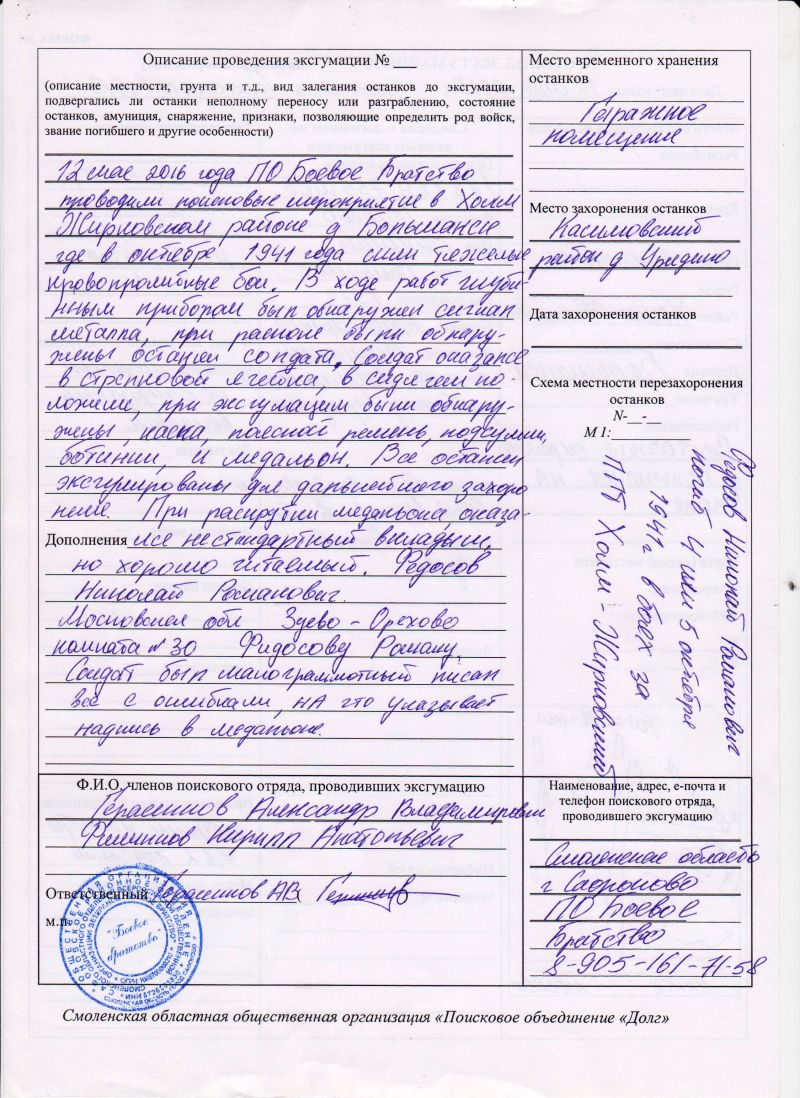 Описание проведения эксгумации № ___
(описание местности, грунта и т.д., вид залегания останков до эксгумации,
подвергались ли останки неполному переносу или разграблению, состояние
останков, амуниция, снаряжение, признаки, позволяющие определить род войск,
звание погибшего и другие особенности)
12 мае 2016 года ПО Боевое Братство
проводили поисковые мероприятие в Холм
Жирковском районе д Боршманси
где в октебре 1941 года сили тяжелые
кровопролитные бои. В ходе работ глуби-
нным прибором был обнаружен сигнал
металла, при раскопе были обнару-
жены останки солдата. Солдат оказался
в стрелковой ячейка, в сидячем по-
ложение, при эксгумации были обнару-
жены, каска, поесной ремень, подсумки,
ботинки, и медальон. Все останки
эксгумированы для дальнейшего захоро
нение. При раскрутки медальона, оказа-
Дополнения лсе нестандартный вкладыш,
но хорошо читаемый. Федосов
Николай Романович.
Московская обл Зуево-Орехово
комната № 30 Фидосову Роману.
Солдат был малограммотный писал
все с ошибками, на что указывает
надпись в медальоне.
Место временного хранения
останков
Гаражное
помещение
Место захоронения останков
Касимовский
район д Уледино
Дата захоронения останков
Схема местности перезахоронения
останков
N- -
М 1:
Федосов Николай Романович
погиб 4 или 5 октебря
1941г в боех за
ПГТ Холм-Жирковский
Ф.И.О. членов поискового отряда, проводивших эксгумацию
Герасимов Александр Владимирович
Филиппов Кирилл Анатольевич
Ответственный Герасимов АВ(
м.п.
"Боевое
братство"
Наименование, адрес, е-почта и
телефон поискового отряда,
проводившего эксгумацию
Смоленская область
г Сафоново
ПО Боевое
Братство
8-905-161-71-58
Смоленская областная общественная организация «Поисковое объединение «Долг»